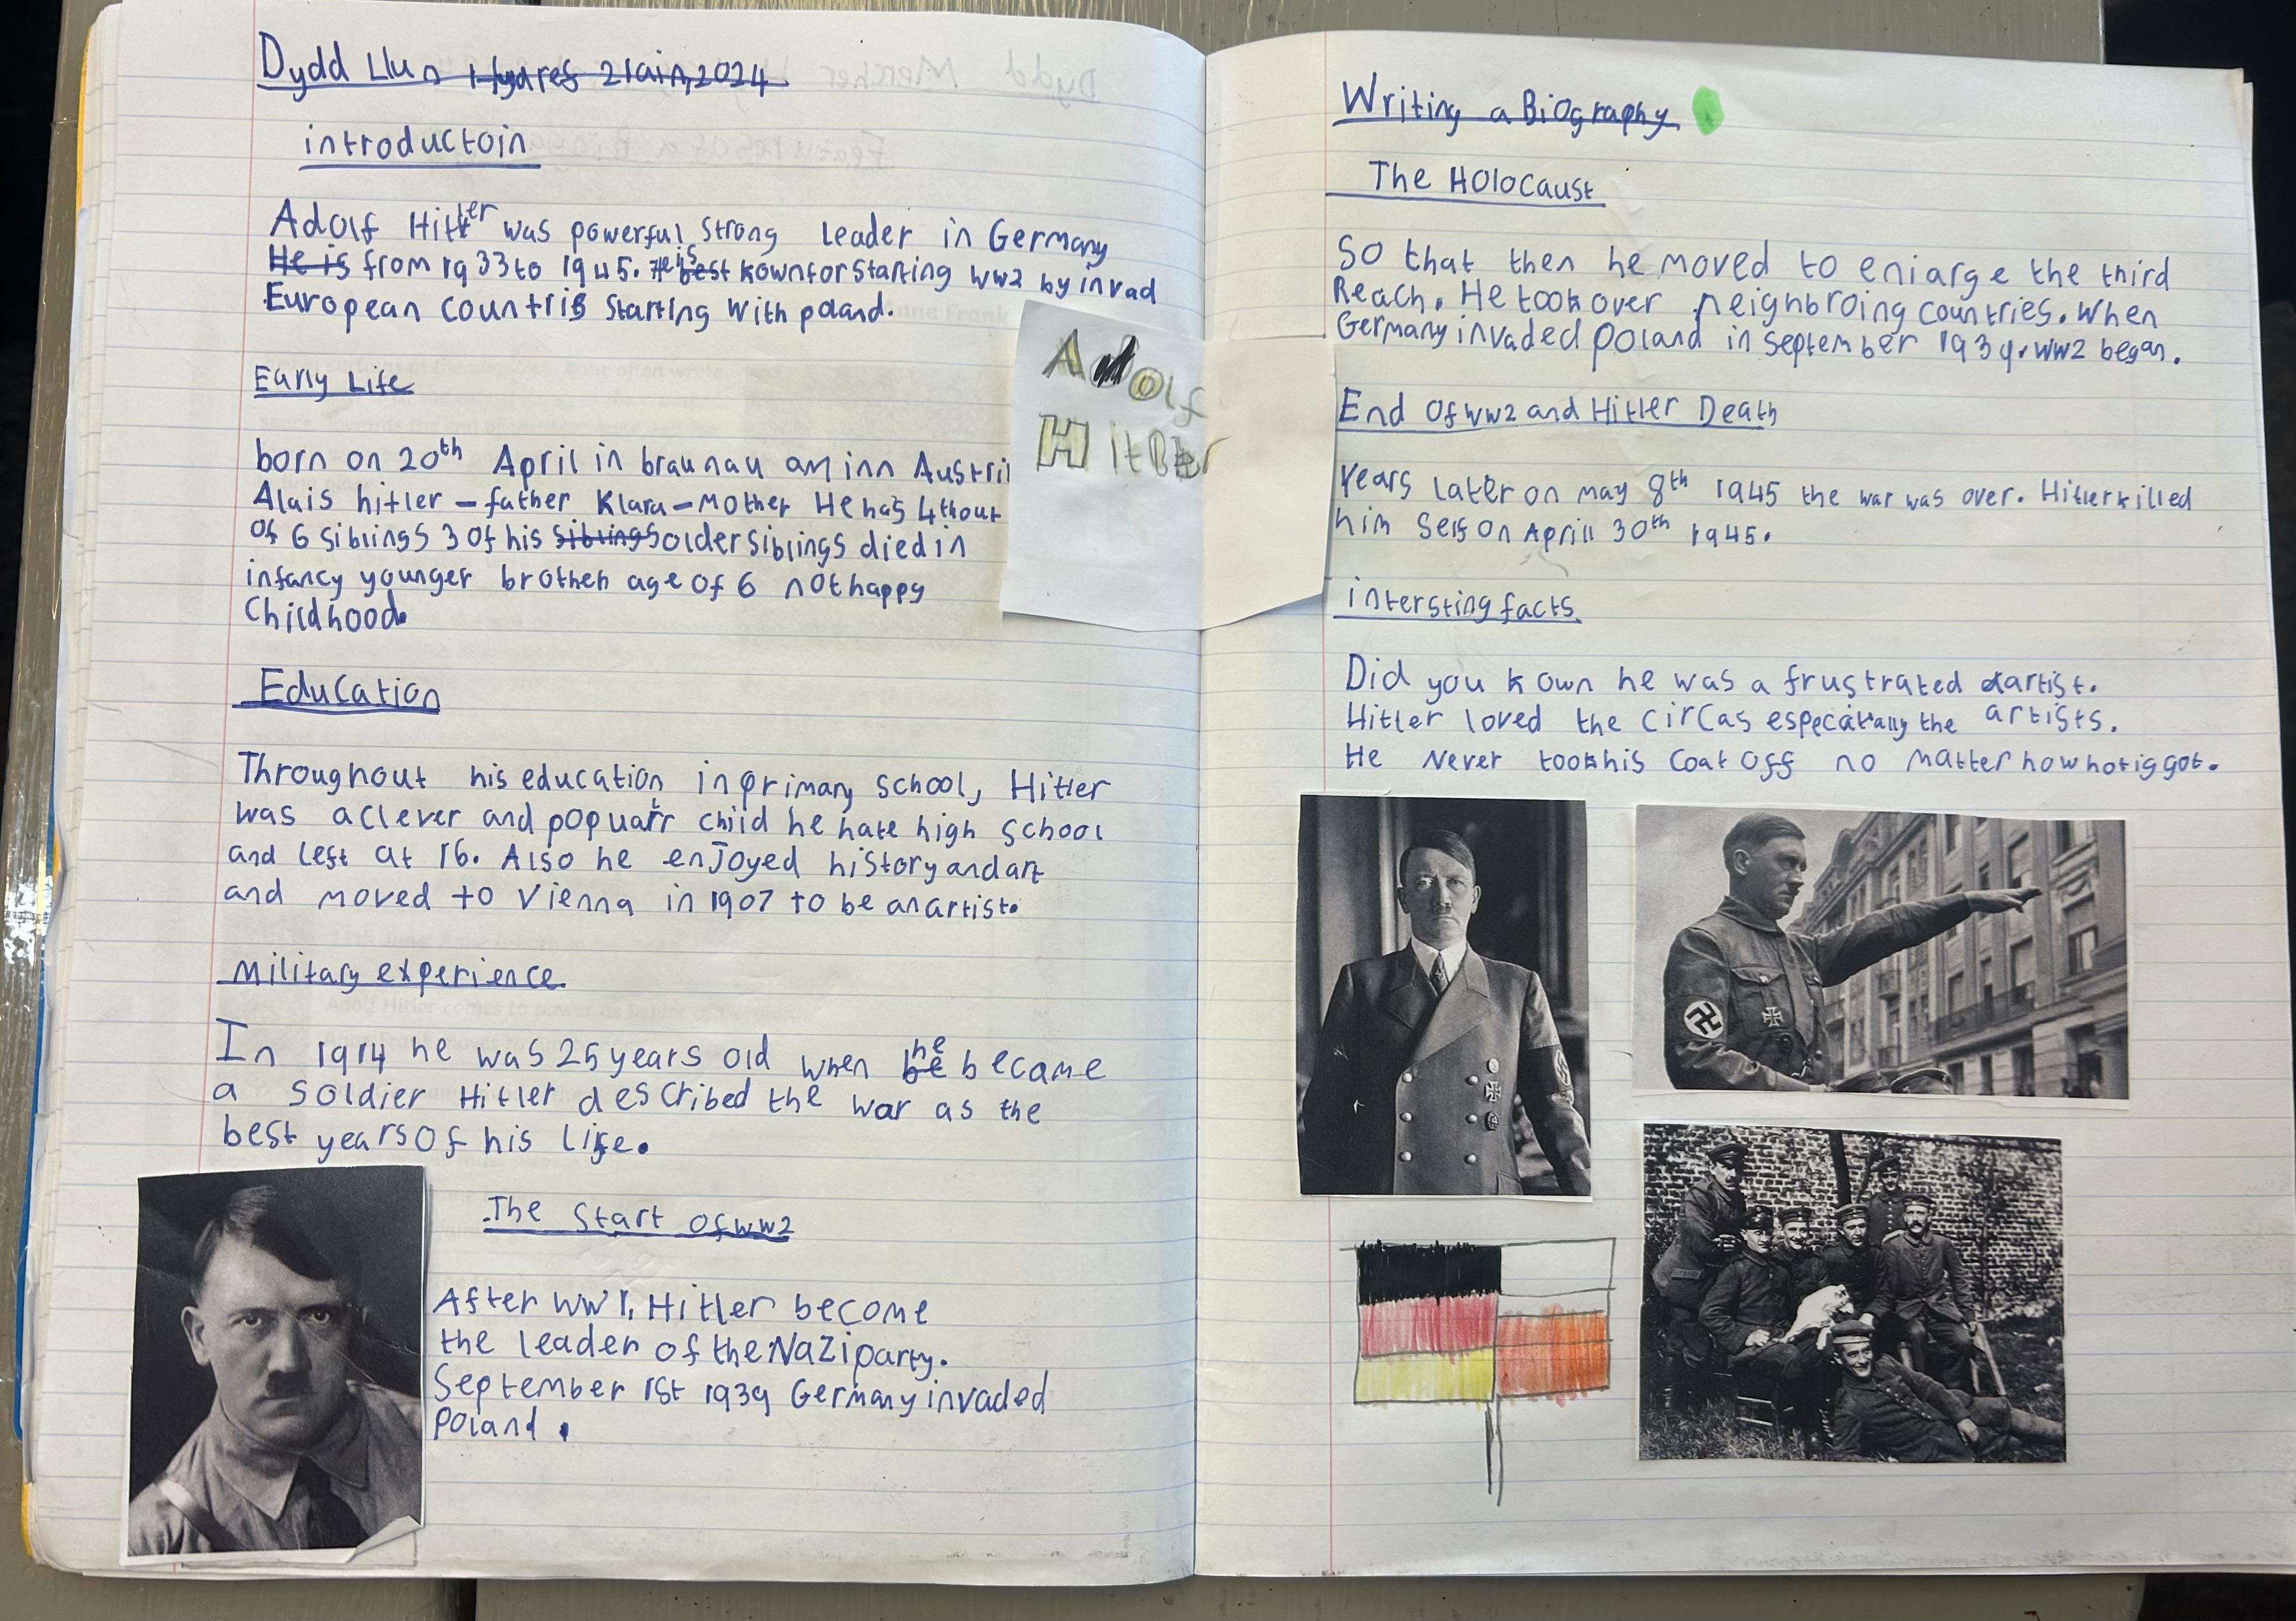 Dydd Llun Hydref 21ain, 2024
introductoin
Adolf Hitler was powerful strong leader in Germany
He is from 1933 to 1945. He is best kown for starting ww2 by invad
European countris starting with poland.
Early Life
born on 20th April in braunau am inn Austri
Alais hitler - father Klara - Mother He has 4th out
of 6 siblings 3 of his siblings older siblings died in
infancy younger brother age of 6 not happy
Childhood.
Education
Throughout his education in primary school, Hitler
was a clever and popuarr child he hate high school
and left at 16. Also he enjoyed history and art
and moved to Vienna in 1907 to be an artist.
Military experience
In 1914 he was 25 years old when he be became
a soldier Hitler described the war as the
best years of his life.
The Start of ww2
After WW1, Hitler become
the leader of the Nazi party.
September 1st 1939 Germany invaded
Poland.
Adolf
Hitler
Writing a Biography
The Holocaust
So that then he moved to enlarge the third
Reach. He took over neighbroing countries. When
Germany invaded poland in september 1939. WW2 began.
End of ww2 and Hitler Death
Years later on may 8th 1945 the war was over. Hitler killed
him self on Aprill 30th 1945.
intersting facts
Did you kown he was a frustrated artist.
Hitler loved the circas the artists.
He Never took his coat off no matter how hot ig got.